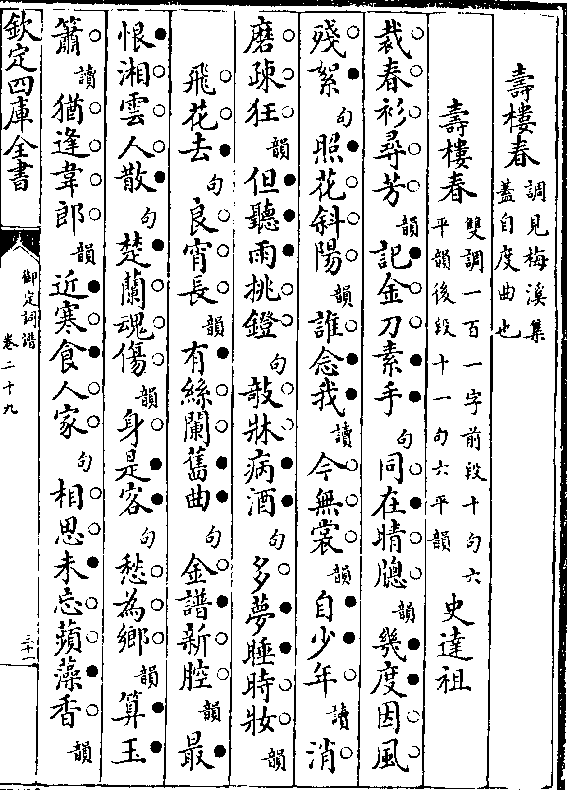 壽樓春 調見梅溪集
蓋自度曲也
壽樓春 雙調一百一字前段十句六
平韻後段十一句六平韻 史達祖
裁春衫尋芳韻記金刀素手句同在晴牕韻幾度因風
殘絮句照花斜陽韻誰念我讀今無裳韻自少年讀消
磨疎狂韻但聽雨挑鐙句敧牀病酒句多夢睡時妝韻
飛花去句良宵長韻有絲闌舊曲句金譜新腔韻最
恨湘雲人散句楚蘭魂傷韻身是客句愁為鄉韻算玉
簫讀猶逢韋郎韻近寒食人家句相思未忘蘋藻香韻
欽定四庫全書
御定詞譜
卷二十九
三十一